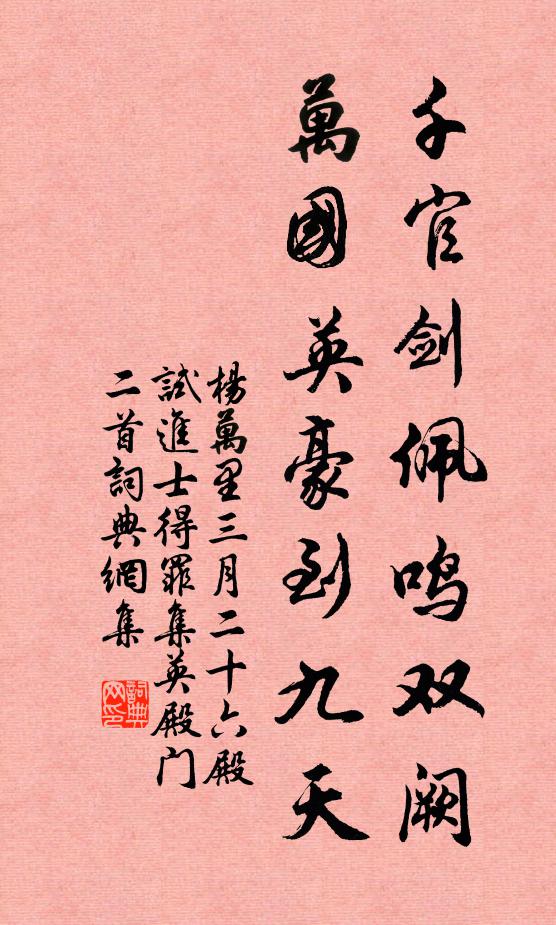 千官剑佩鸣双阙
萬國英豪到九天
楊萬里三月二十六殿
試進士得罷集英殿门
二首詞典網集
詞典网印